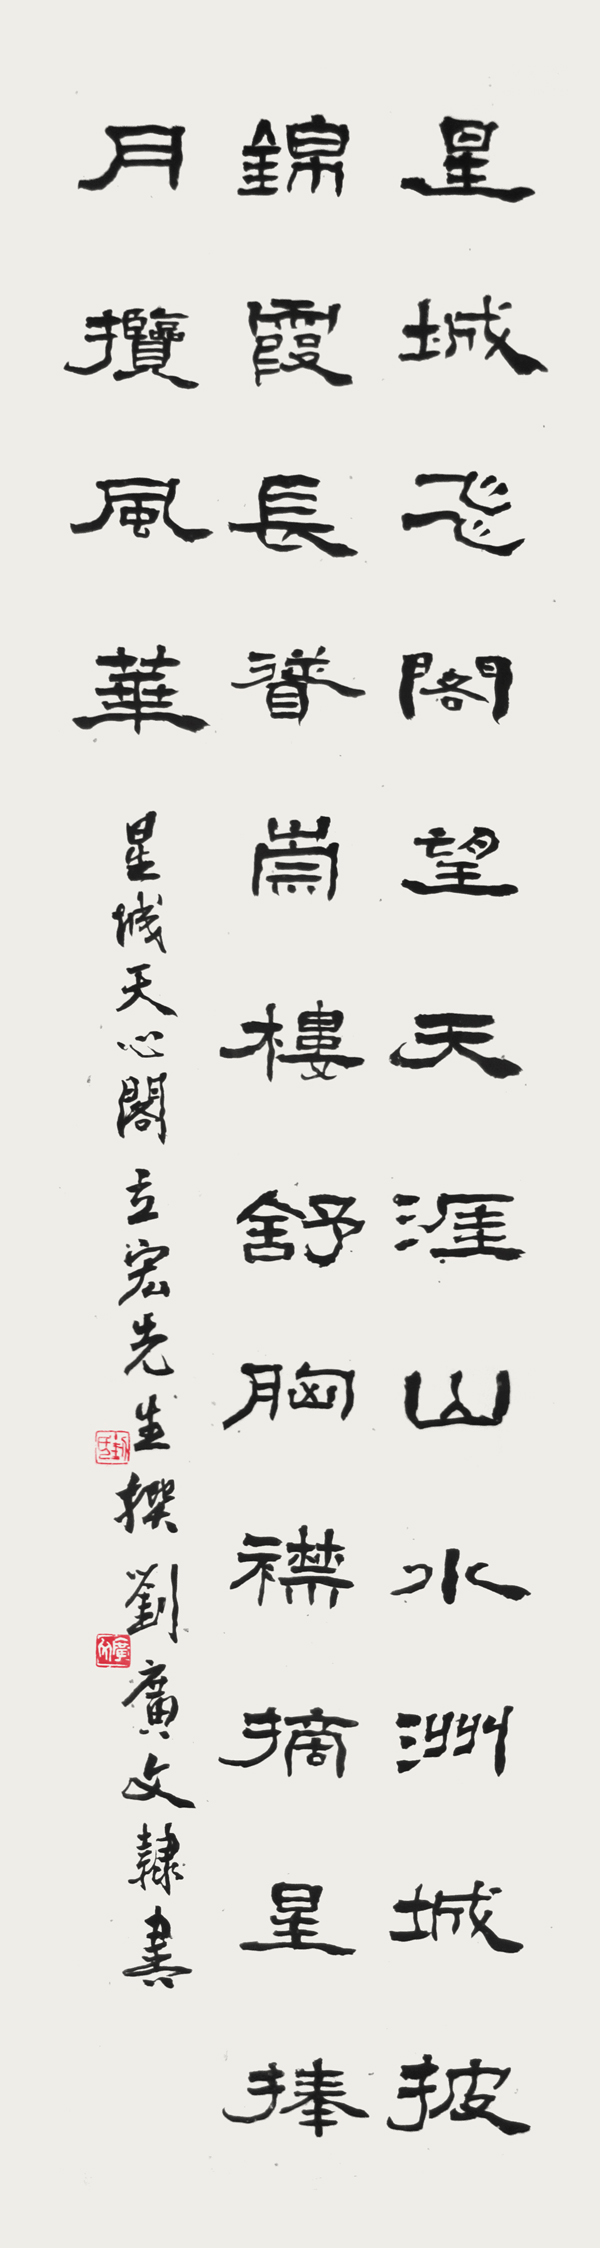 星城飛閣望天涯山水洲城披
錦霞長崇樓舒胸襟摘星捧
月攬風華
星城天心閣立宏先生撰劉廣文隸書